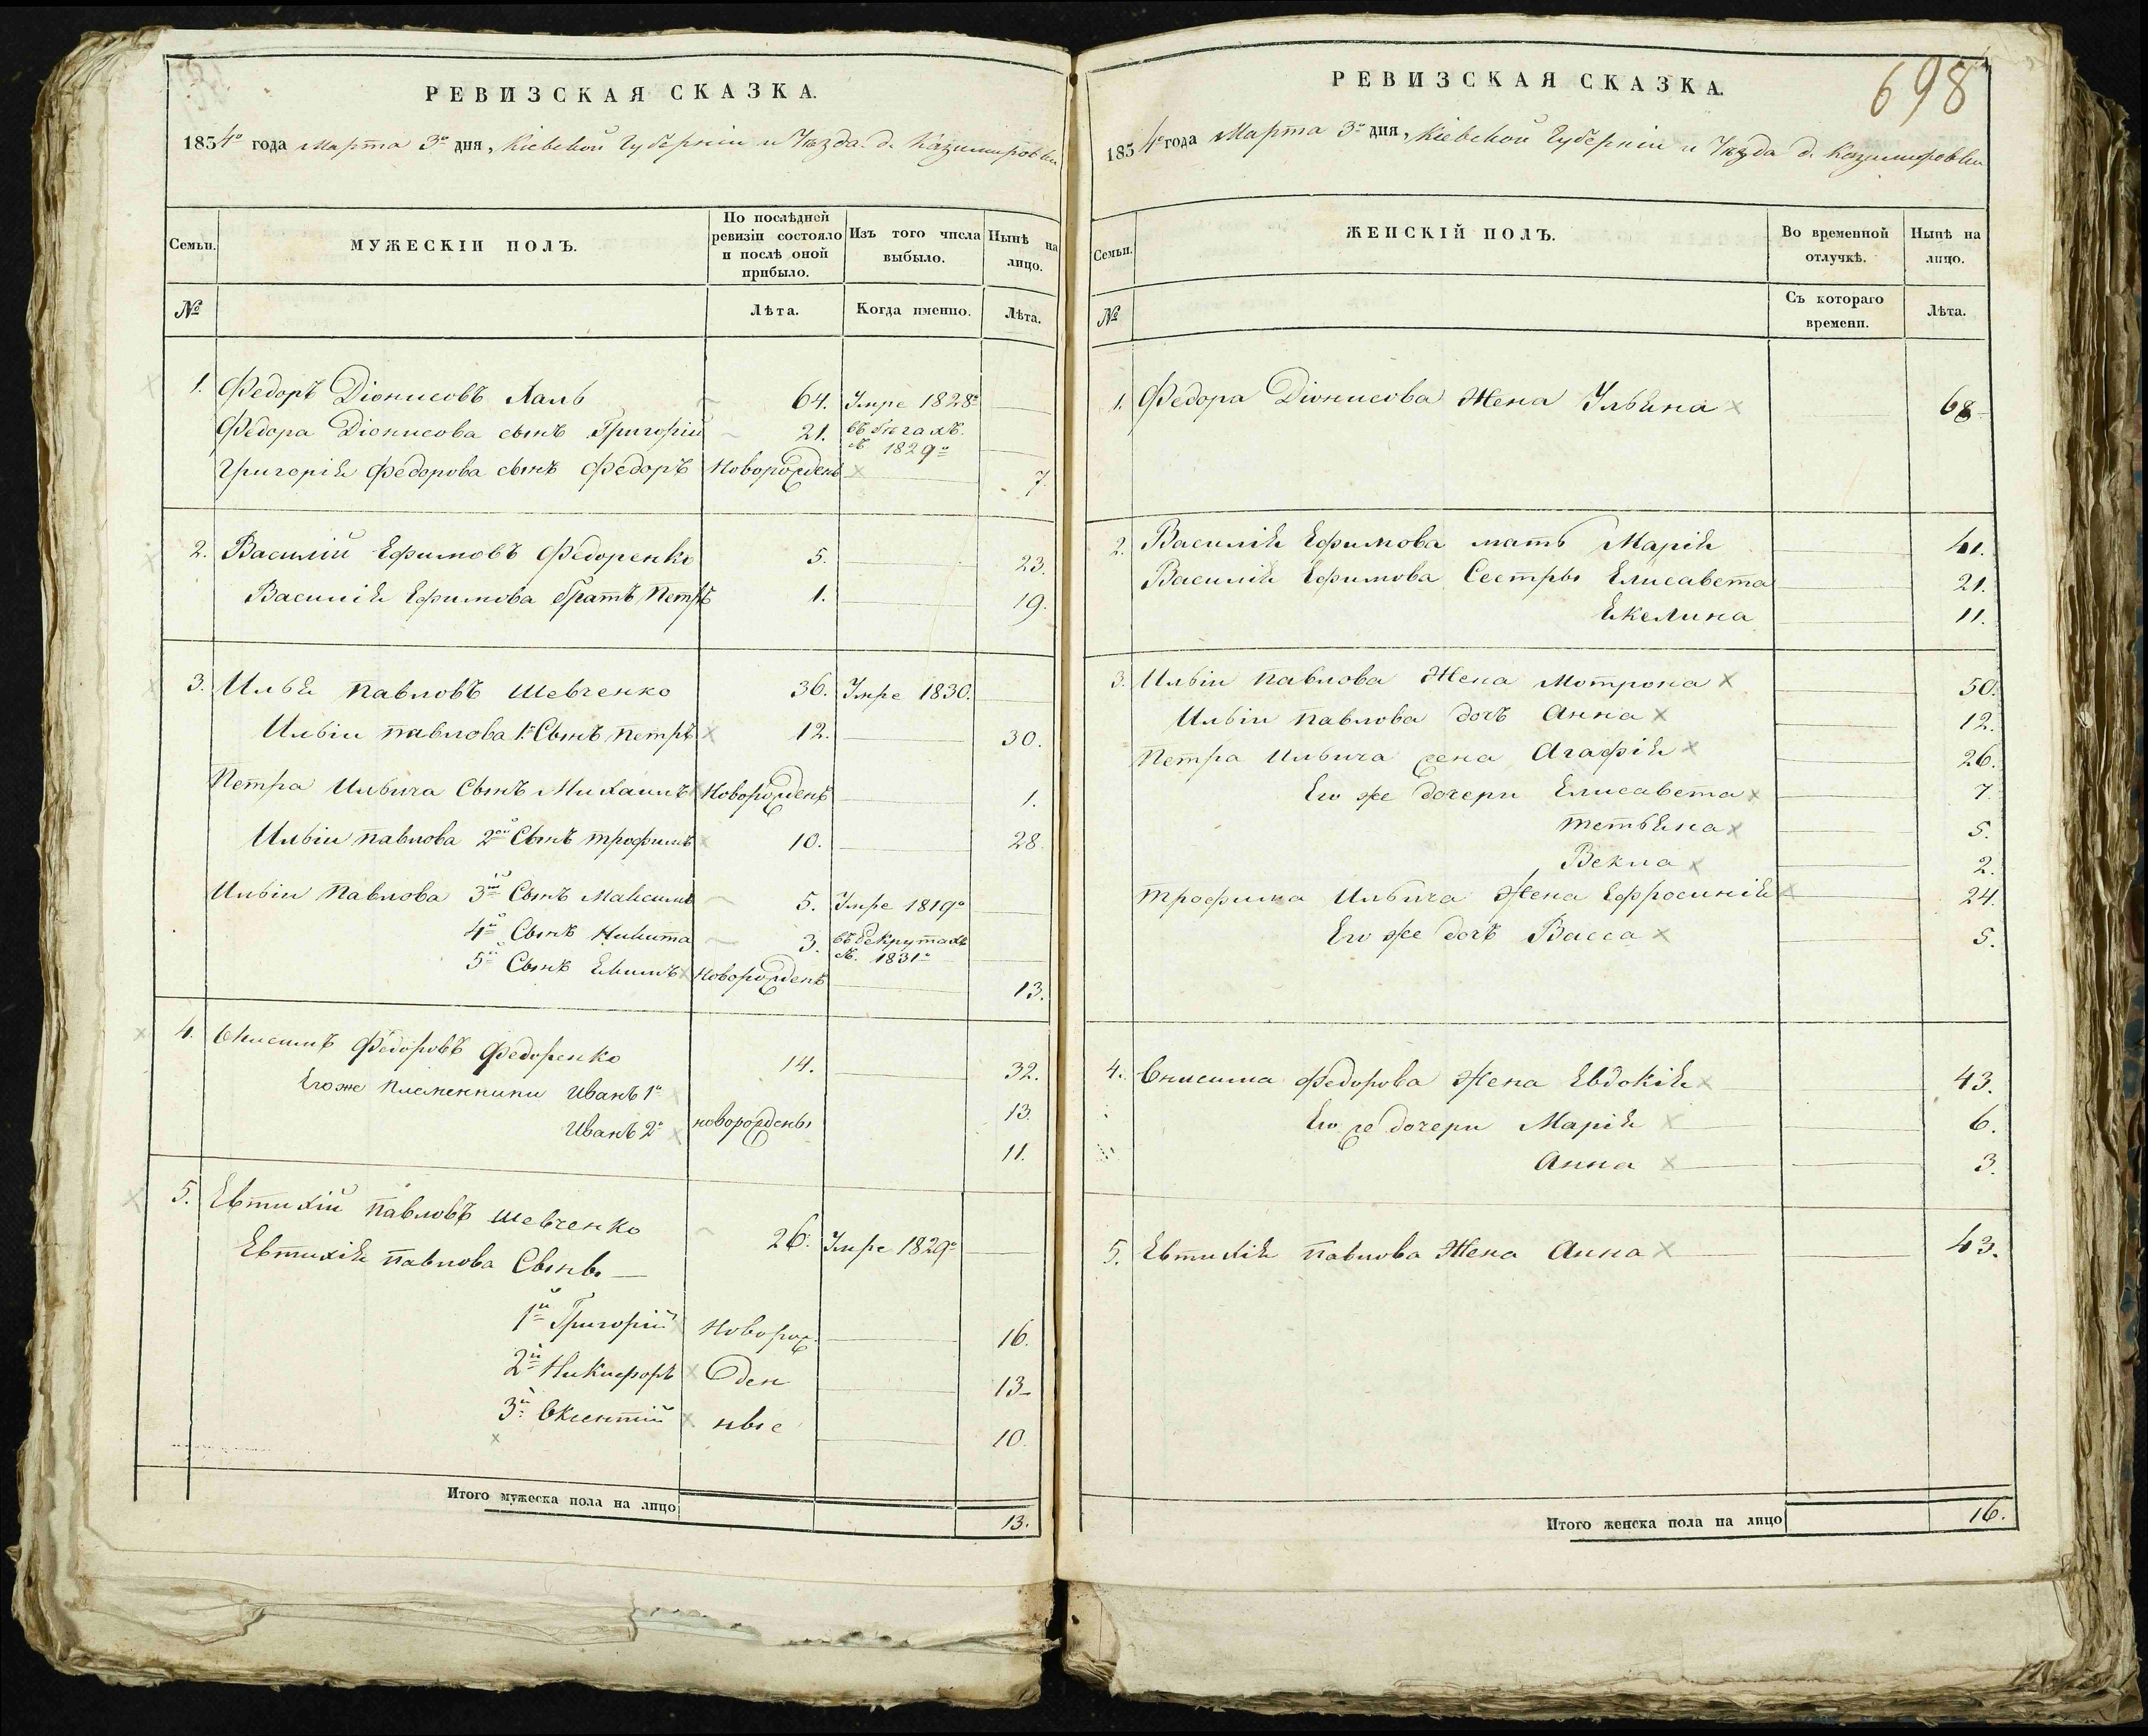 РЕВИЗСКАЯ СКАЗКА.
1834º года Марта 3º дня, Кіевской Губерніи и Уѣзда д. Казимировки
Семьи. МУЖЕСКІЙ ПОЛЪ. По послѣдней ревизіи состояло и послѣ оной прибыло. Изъ того числа выбыло. Нынѣ на лицо.
№ Лѣта. Когда именно. Лѣта.
1. Федоръ Діонисовъ 64. Умре 1828º
Федора Діонисова сынъ Григорій 21. въ бѣгахъ
съ 1829º
Григорія Федорова сынъ Федоръ Новорожденъ 7.
2. Василій Ефимовъ Федоренко 5. 23.
Василія Ефимова братъ Петръ 1. 19.
3. Илья Павловъ Шевченко 36. Умре 1830.
Ильи Павлова 1й Сынъ Петръ 12. 30.
Петра Ильича Сынъ Михаилъ Новорожденъ 1.
Ильи Павлова 2ой Сынъ Трофимъ 10. 28.
Ильи Павлова 3ій Сынъ Максимъ 5. Умре 1819º
4й Сынъ Никита 3. въ Рекрутахъ
съ 1831º
5й Сынъ Новорожденъ 13.
4. Онисимъ Федоровъ Федоренко 14. 32.
Его же Племенники Иванъ 1º 13.
Иванъ 2º новорождены 11.
5. Евтихій Павловъ Шевченко 26. Умре 1829º
Евтихія Павлова Сынъ —
1й Григорій Новорож 16.
2й Никифоръ ден 13
3й Оксентій ные 10.
Итого мужеска пола на лицо 13.
РЕВИЗСКАЯ СКАЗКА.
698
1834º года Марта 3º дня, Кіевской Губерніи и Уѣзда д. Казимировки
Семьи. ЖЕНСКІЙ ПОЛЪ. Во временной отлучкѣ. Нынѣ на лицо.
№ Съ котораго времени. Лѣта.
1. Федора Діонисова Жена Ульяна 68
2. Василія Ефимова мать Марія 41.
Василія Ефимова Сестры Елисавета 21.
11.
3. Ильи Павлова Жена Мотрона 50.
Ильи Павлова дочь Анна 12.
Петра Ильича жена Агафія 26.
Его же дочери Елисавета 7.
Тетьяна 5.
Векла 2.
Трофима Ильича Жена Ефросинія 24.
Его же дочь Васса 5.
4. Онисима Федорова Жена Евдокія 43.
Его же дочери Марія 6.
Анна 3.
5. Евтихія Павлова Жена Анна 43.
Итого женска пола на лицо 16.